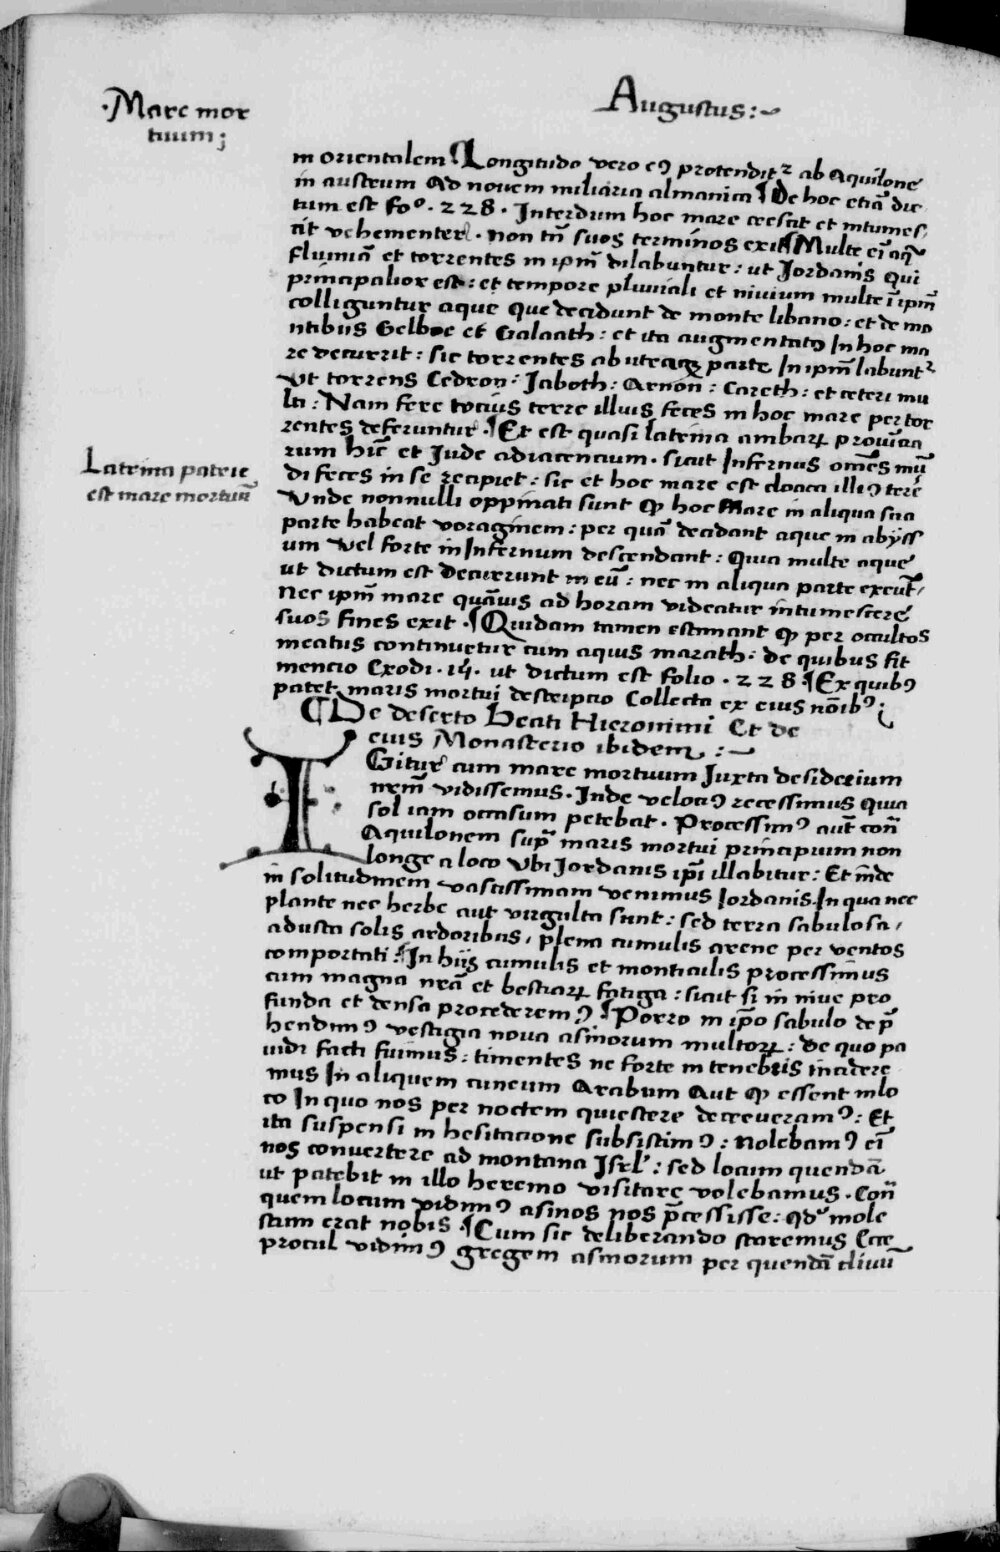 Augustus :~
·Mare mor
tuum ;
in orientalem ¶ Longitudo vero eꝰ protendit᷑ ab Aquilone
in austrum Ad novem miliaria almanica ¶ De hoc etiā dic
tum est foº . 228 . Interdum hoc mare crescit et intumes
cit vehementer . non tn̄ suos terminos exit ¶ Multe ei̅ aq̄
flumiā et torrentes in ipm̄ dilabuntur : ut Jordanis qui
principalior est : et tempore pluviali et nivium multe ī ipm̄
colliguntur aque que decidunt de monte libano : et de mo
ntibus Gelboe et Galaath : et ita augmentatꝰ In hoc ma
re decurrit : sic torrentes ab utraqꝫ parte In ipm̄ labunt᷑
ut torrens Cedron : Jaboth : Arnon : Careth : et ceteri mu
lti : Nam fere tocius terre illius feces in hoc mare per tor
rentes deferuntur . ¶ Et est quasi latrina ambaꝝ provīcia
rum hic̄ et Jude adiacencium . sicut Infernus om̄es mū
di feces in se recipiet : sic et hoc mare est cloaca illiꝰ terre
Latrina patrie
est mare mortuū
Unde nonnulli oppinati sunt ꝙ hoc Mare in aliqua sua
parte habeat voraginem : per quā decidant aque in abyss
um vel forte in Infernum descendant : Quia multe aque
ut dictum est decurrunt in eū : nec in aliqua parte exeūt
nec ipm̄ mare quāvis ad horam videatur intumescere
suos fines exit . ¶ Quidam tamen estimant ꝙ per occultos
meatus continuetur cum aquis marath : de quibus fit
mencio Exodi . 14 . ut dictum est folio . 228 ¶ Ex quibꝰ
patet maris mortui descriptio Collecta ex eius noı̄bꝰ ;
¶ De deserto Beati Hieronimi Et de
eius Monasterio ibidem : ~
IGitur cum mare mortuum Juxta desiderium
nr̄m vidissemus . Inde velociꝰ recessimus Quia
sol iam occasum petebat . Processimꝰ aut̄ cōn̄
Aquilonem sup̄ maris mortui principium non
longe a loco Ubi Jordanis ip̄i illabitur : Et inde
in solitudinem vastissimam venimus Jordanis In qua nec
plante nec herbe aut virgulta sunt : sed terra sabulosa ,
adusta solis ardoribus , plena cumulis arene per ventos
comportati ¶ In hijs cumulis et monticulis processimus
cum magna nr̄a et bestiaꝝ fatiga : sicut si in nive pro
funda et densa procederemꝰ ¶ Porro in ip̄o sabulo dep̄
hendimꝰ vestigia nova asinorum multoꝝ : de quo pa
vidi facti fuimus : timentes ne forte in tenebris incidere
mus In aliquem cuneum Arabum Aut ꝙ essent in lo
co In quo nos per noctem quiescere decreveramꝰ : Et
ita suspensi in hesitacione subsistimꝰ : nolebamꝰ eī
nos convertere ad montana Isrl̄ : sed locum quendā
ut patebit in illo heremo visitare volebamus . Con̄
quem locum vidimꝰ asinos nos p̄cessisse : qd̄ mole
stum erat nobis ¶ Cum sic deliberando staremus Ecce
procul vidimꝰ gregem asinorum per quendā clivū